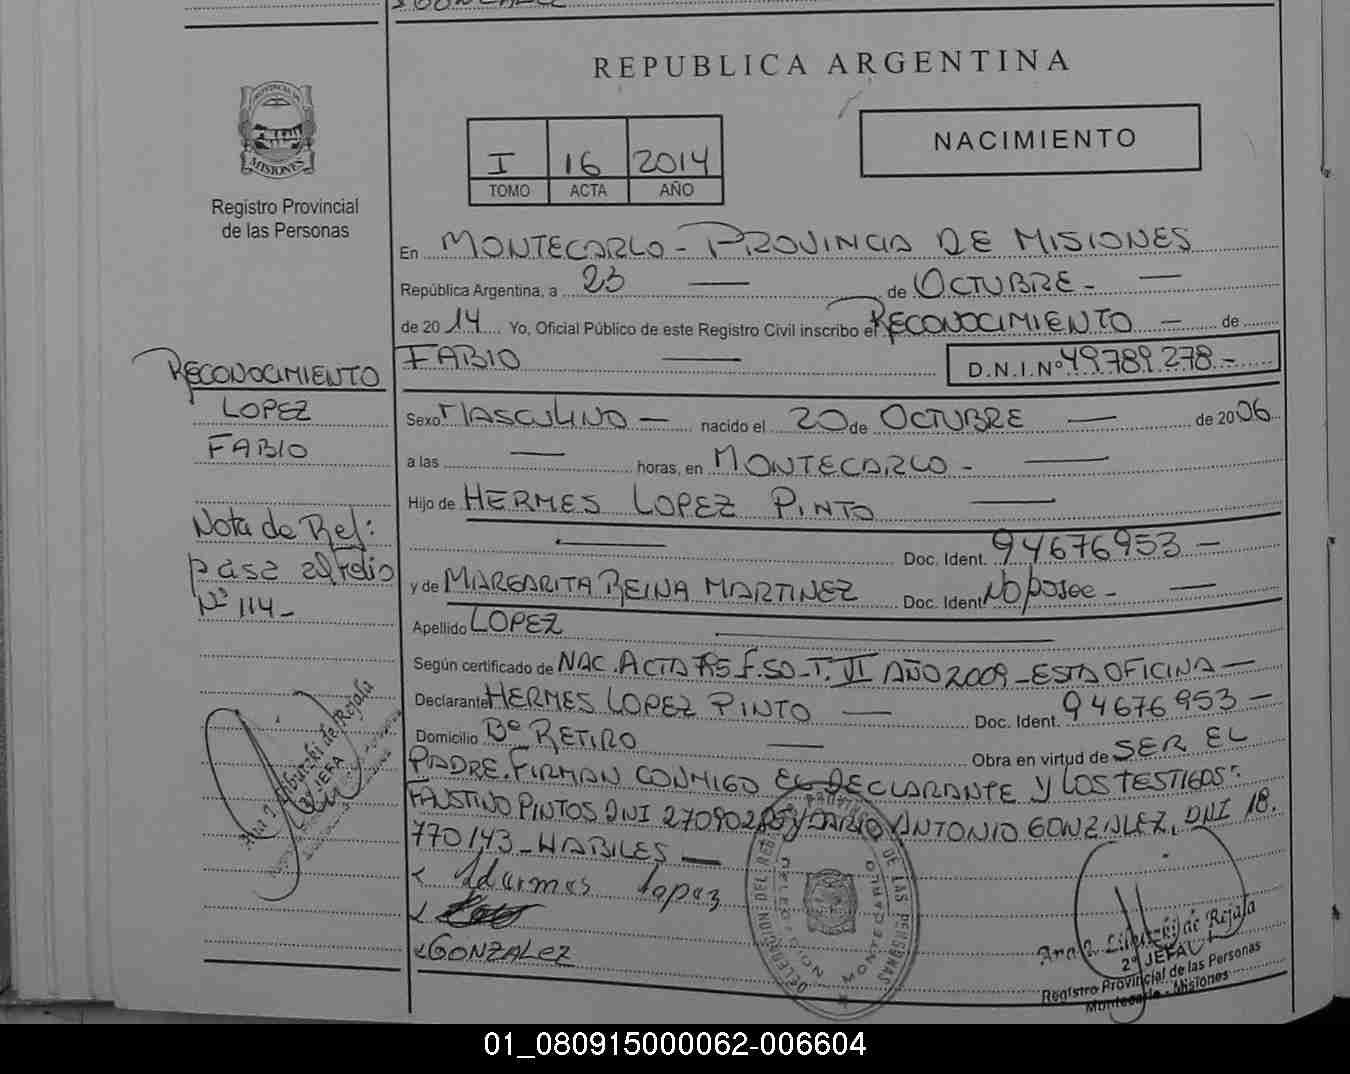 REPUBLICA ARGENTINA
PROVINCIA DE
MISIONES
Registro Provincial
de las Personas
I 16 2014
TOMO ACTA AÑO
NACIMIENTO
En MONTECARLO - PROVINCIA DE MISIONES
República Argentina, a 23 — de OCTUBRE -
de 2014 Yo, Oficial Público de este Registro Civil inscribo el RECONOCIMIENTO - de
FABIO — D.N.I.Nº 49.789.278-
RECONOCIMIENTO
LOPEZ
FABIO
Nota de Ref:
pase al folio
Nº 114-
Sexo MASCULINO — nacido el 20 de OCTUBRE — de 2006
a las — horas, en MONTECARLO - —
Hijo de HERMES LOPEZ PINTO —
— Doc. Ident. 94676953 -
y de MARGARITA REINA MARTINEZ Doc. Ident No posee -
Apellido LOPEZ —
Según certificado de NAC. ACTA F.50-T. VI AÑO 2009-ESTA OFICINA -
Declarante HERMES LOPEZ PINTO — Doc. Ident. 94676953 -
Domicilio Bº RETIRO — Obra en virtud de SER EL
PADRE. FIRMAN CONMIGO EL DECLARANTE Y LOS TESTIGOS:
FAUSTINO PINTOS DNI Y DARIO ANTONIO GONZALEZ, DNI 18.
770143-HABILES —
lopez
GONZALEZ
DE LAS PERSONAS
MONTECARLO
Ana de Rejala
2º JEFA
Ana de Rejala
2º JEFA
Registro Provincial de las Personas
Montecarlo - Misiones
01_080915000062-006604